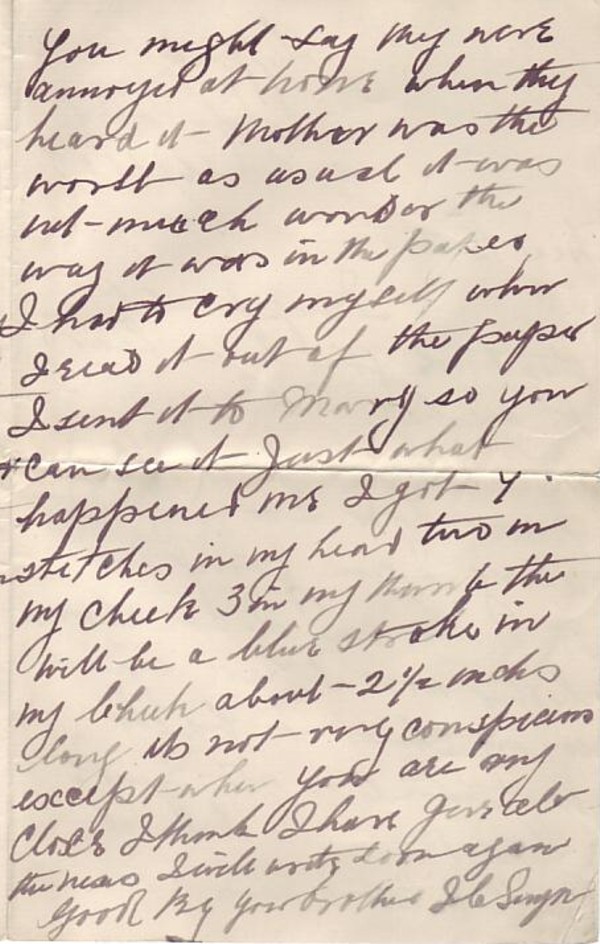 You might say they were
annoyed at home when they
heard it Mother was the
worst as usual it was
not much wonder the
way it was in the papers
I had to cry myself when
I read it out of the paper
I sent it to Mary so you
can see it Just what
happened me I got 4
stetches in my head two in
my cheek 3 in my thumb the
will be a blue stroke in
my cheek about 2 1/2 inches
long its not very conspicious
except when you are very
close I think I have give all
the news I will write soon again
Good By your brother